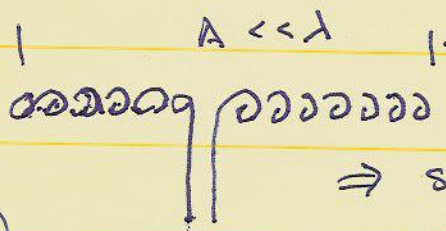 A << λ
⇒ s